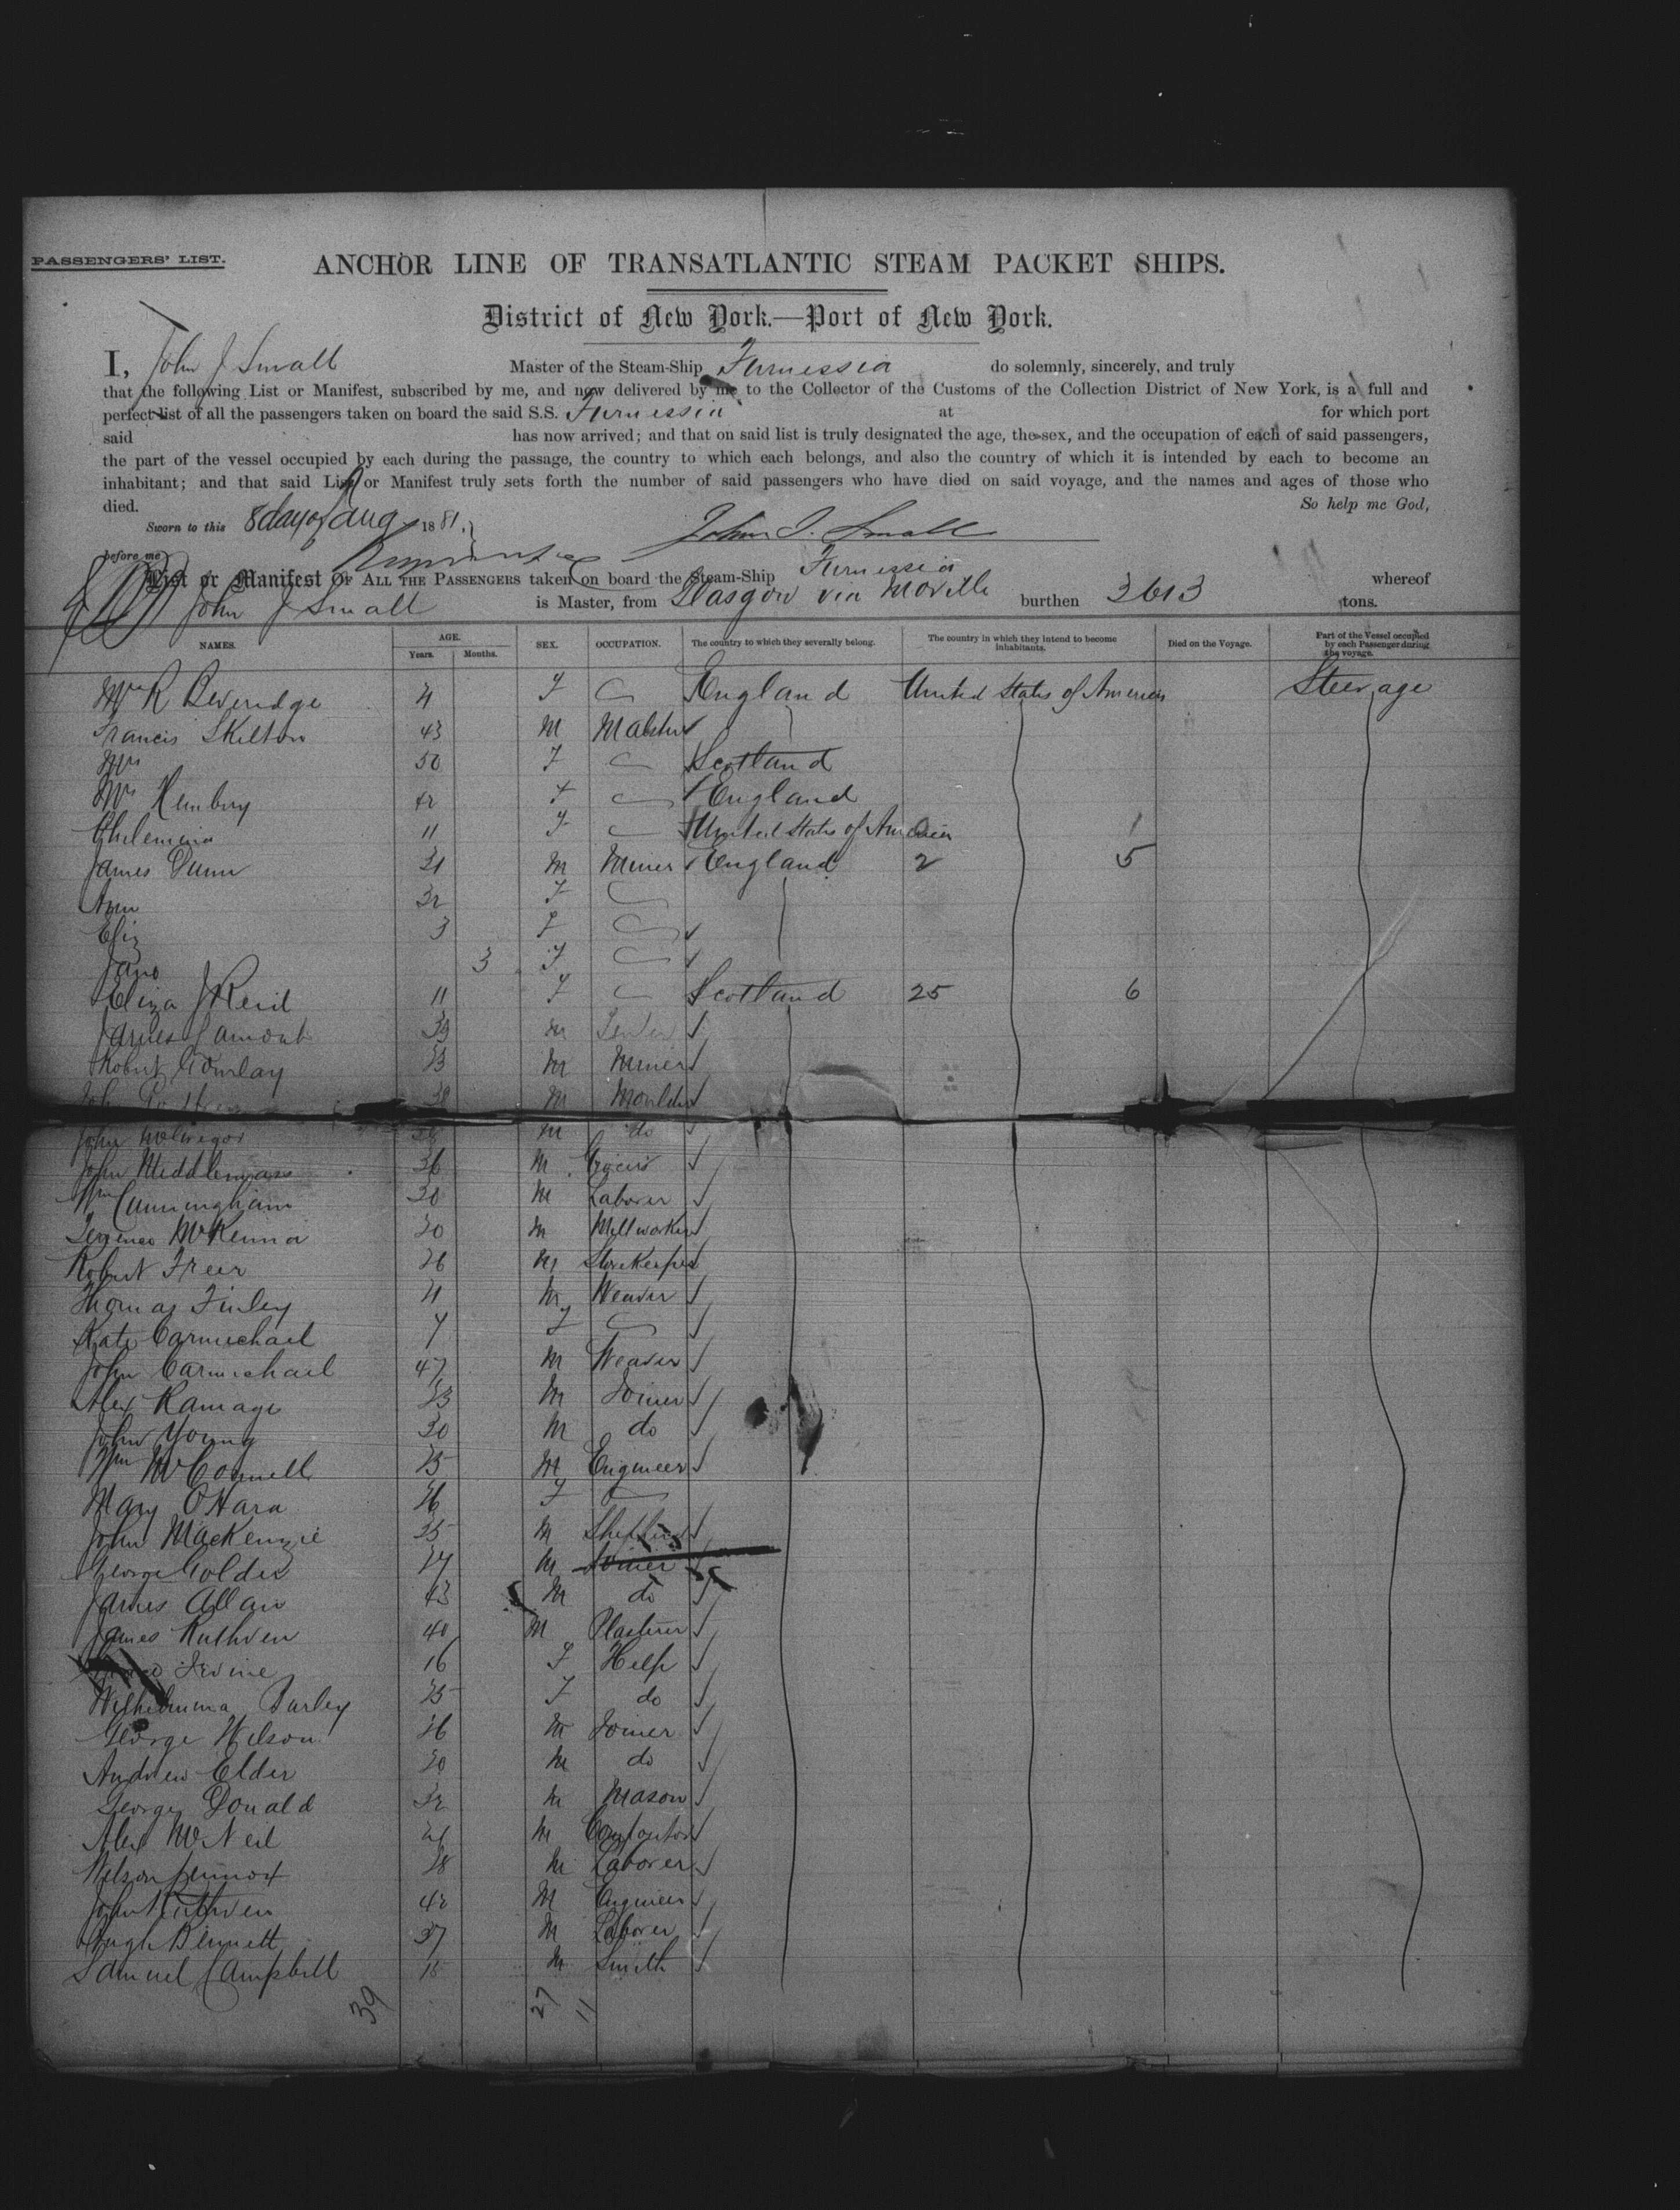 PASSENGERS' LIST.
ANCHOR LINE OF TRANSATLANTIC STEAM PACKET SHIPS.
District of New York.—Port of New York.
I, John J Small Master of the Steam-Ship Furnessia do solemnly, sincerely, and truly
that the following List or Manifest, subscribed by me, and now delivered by me to the Collector of the Customs of the Collection District of New York, is a full and
perfect list of all the passengers taken on board the said S.S. Furnessia at for which port
said has now arrived; and that on said list is truly designated the age, the sex, and the occupation of each of said passengers,
the part of the vessel occupied by each during the passage, the country to which each belongs, and also the country of which it is intended by each to become an
inhabitant; and that said List or Manifest truly sets forth the number of said passengers who have died on said voyage, and the names and ages of those who
died. So help me God,
Sworn to this 8 day of Aug 1881. John J. Small
before me
List or Manifest OF ALL THE PASSENGERS taken on board the Steam-Ship Furnessia whereof
John J Small is Master, from Glasgow via Moville burthen 3613 tons.
NAMES. AGE. Years. Months. SEX. OCCUPATION. The country to which they severally belong. The country in which they intend to become inhabitants. Died on the Voyage. Part of the Vessel occupied by each Passenger during the voyage.
Mrs R Beveridge F England United States of America Steerage
Francis Skilton 43 M
Mrs 50 F Scotland
Mrs F England
11 F United States of America
James Dunn M Miner England 2 5
Ann 32 F
Eliz 3 F
Jane 3 F
Eliza J Reid 11 F Scotland 25 6
James Lamont 39 M
Robert Gourlay M Miner
John 38 M Moulder
John McGregor M do
John Middlemass 36 M Grocer
Wm Cunningham M Laborer
Terence McKenna M Millworker
Robert Freer M Storekeeper
Thomas Finley M Weaver
Kate Carmichael F
John Carmichael 47 M Weaver
Alex Ramage M Joiner
John Young M do
Wm McConnell M Engineer
Mary O'Hara F
John MacKenzie M
George Golder M Joiner
James Allan M do
James Ruthven 40 M Plasterer
Irvine 16 F Help
Wilhelmina Barley F do
George Wilson M Joiner
Andrew Elder M do
George Donald 32 M Mason
Alex McNeil M Compositor
Nelson Lennox M Laborer
John Ruthven 42 M Engineer
Hugh Bennett 37 M Laborer
Samuel Campbell M Smith
39 27 11